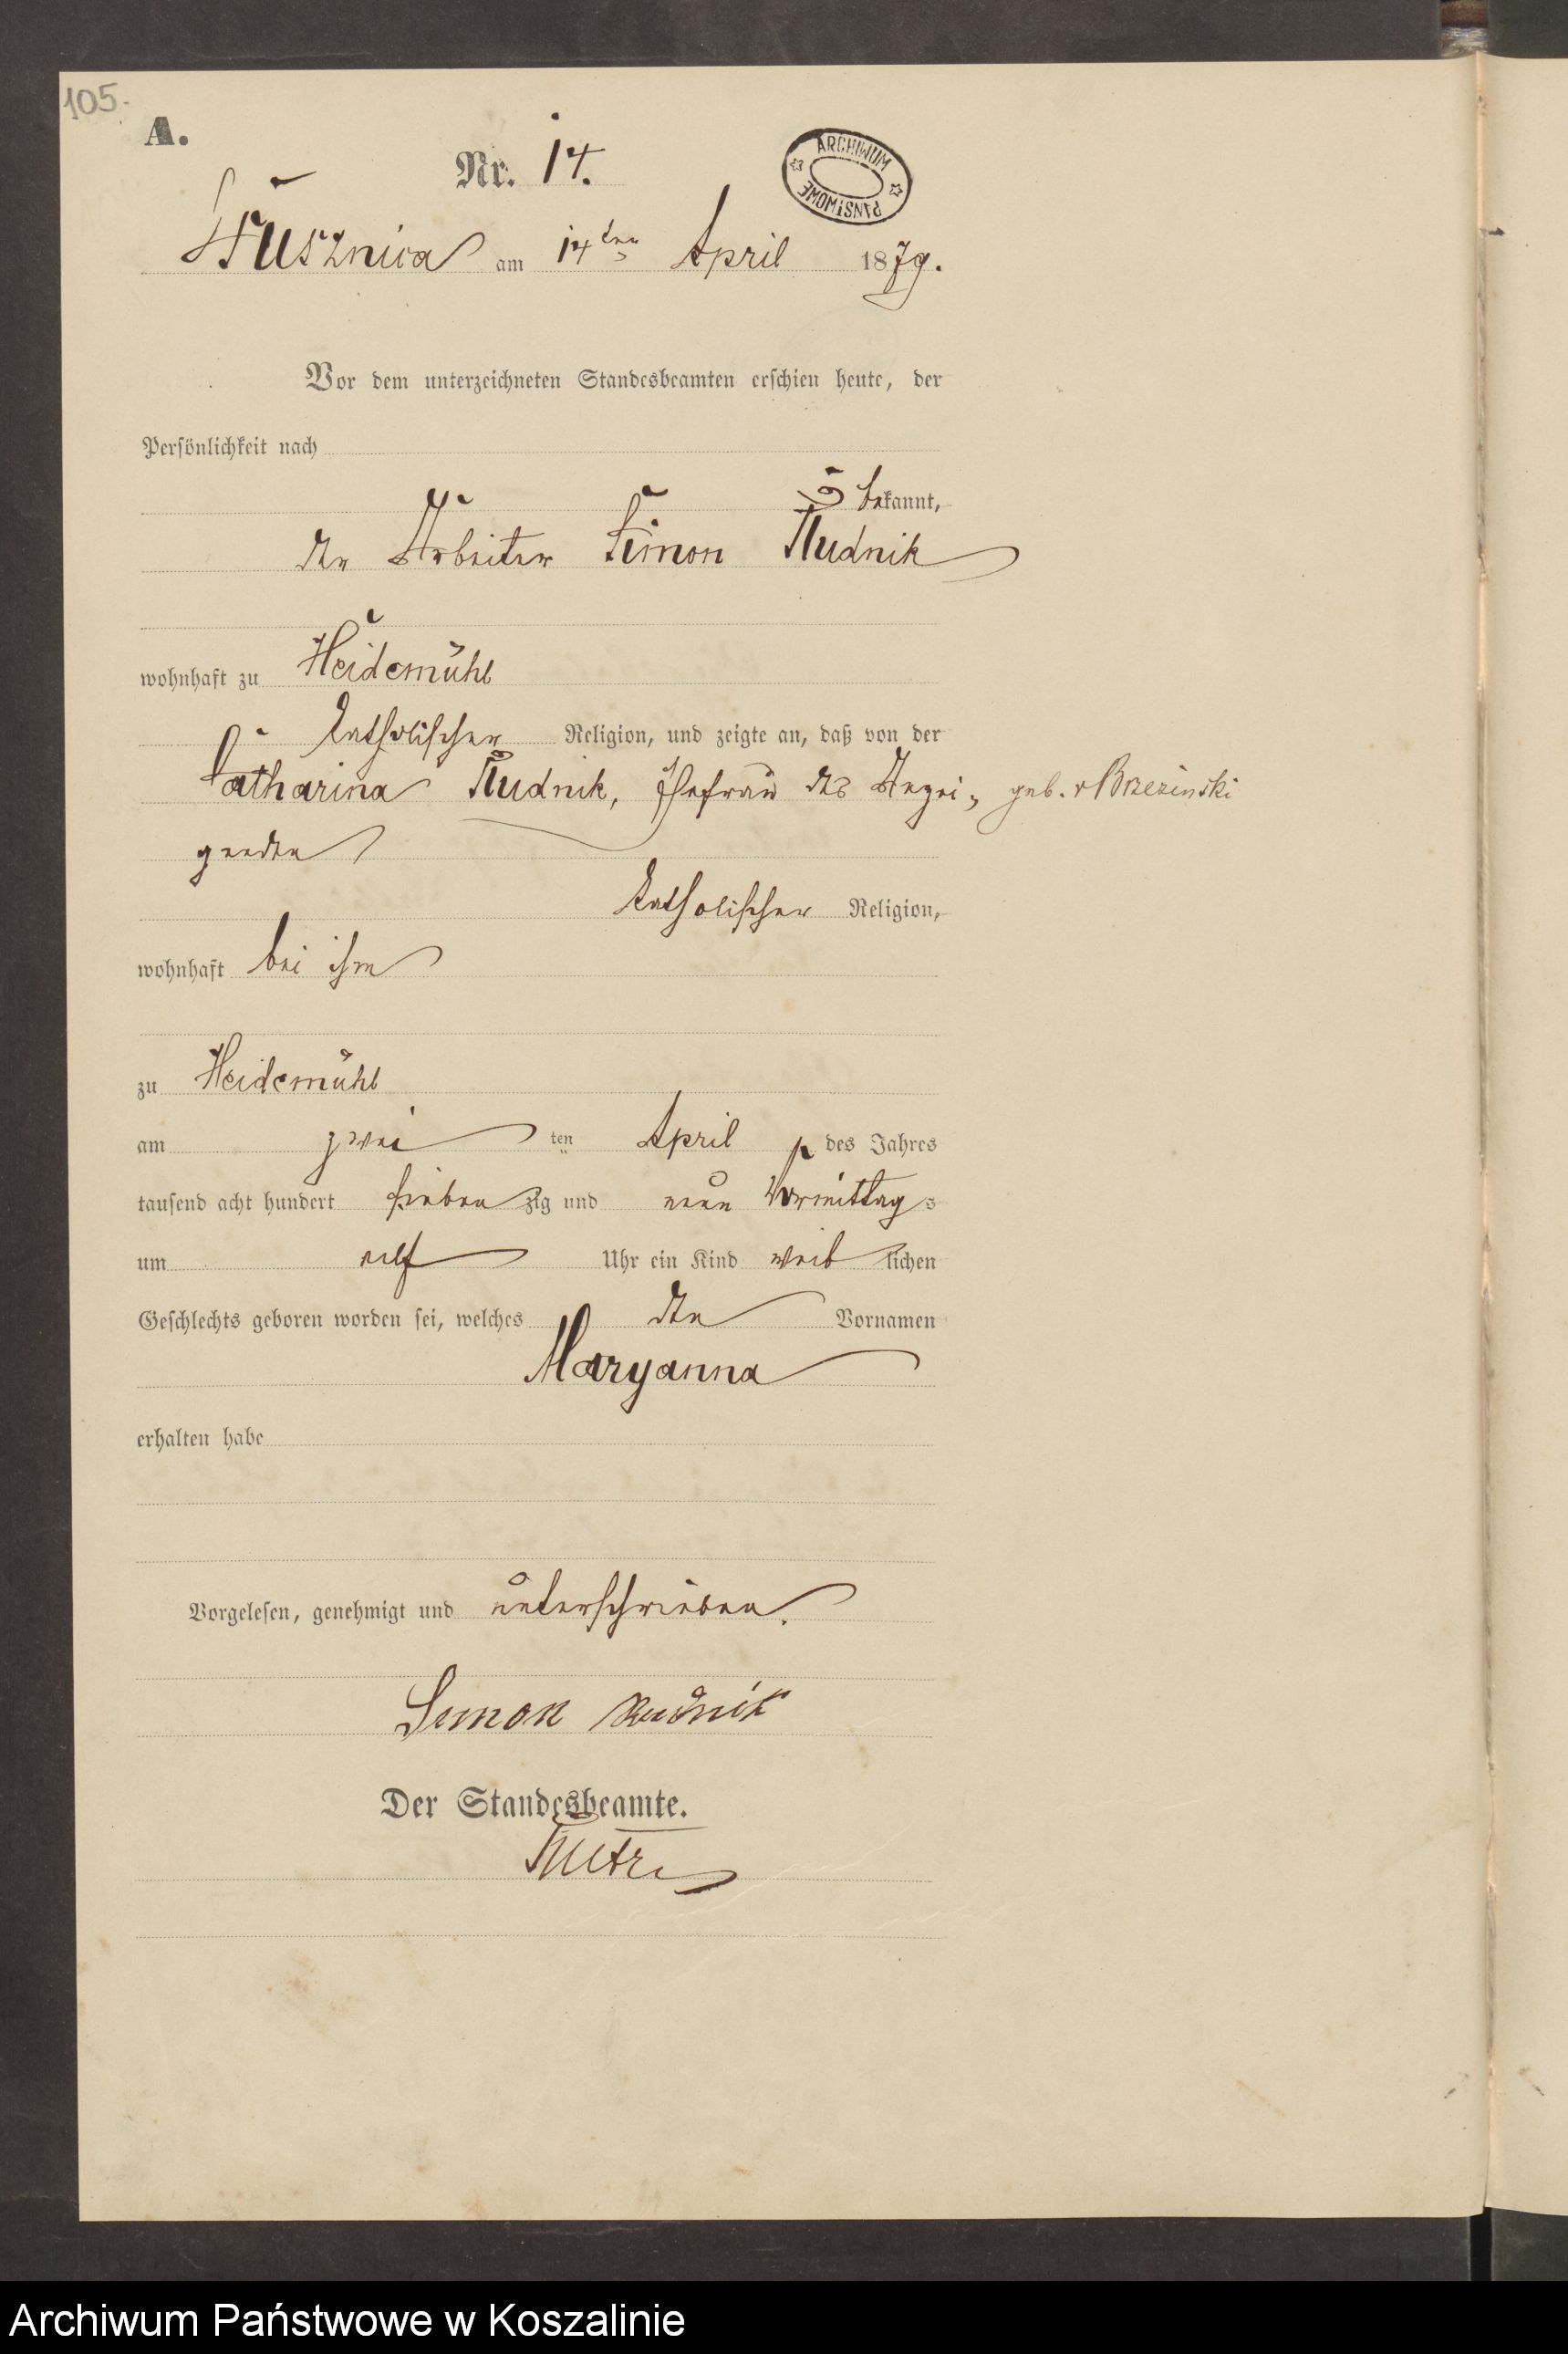 105.
A.
Nr. 14.
ARCHIWUM
PAŃSTWOWE
Trusznica am 14ten April 1879.
Vor dem unterzeichneten Standesbeamten erschien heute, der
Persönlichkeit nach
bekannt,
der Arbeiter Simon Rudnik
wohnhaft zu Heidemühl
katholischer Religion, und zeigte an, daß von der
Catharina Rudnik, Ehefrau des Anzei- geb. v Brzezinski
genden
katholischer Religion,
wohnhaft bei ihm
zu Heidemühl
am zwei ten April des Jahres
tausend acht hundert sieben zig und neun Vormittags
um elf Uhr ein Kind weiblichen
Geschlechts geboren worden sei, welches den Vornamen
Maryanna
erhalten habe
Vorgelesen, genehmigt und unterschrieben.
Simon Rudnik
Der Standesbeamte.
Archiwum Państwowe w Koszalinie